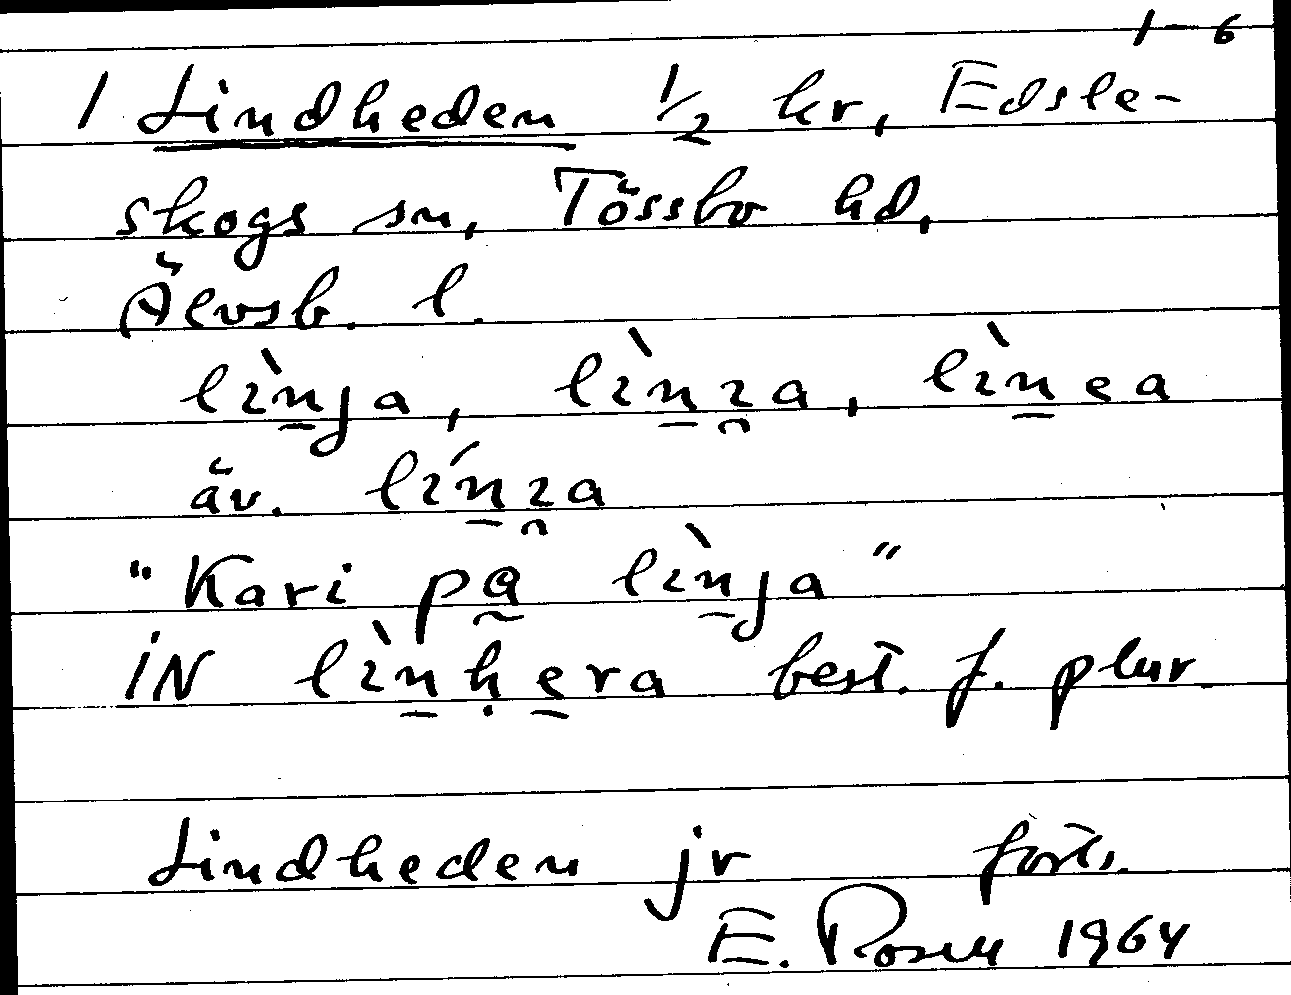 1-6
1 Lindheden 1/2 kr, Edsle-
skogs sn, Tössbo hd,
Älvsb. l.
lìn̠ja, lìn̠ı̯a, lìn̠ea
äv. lín̠ı̯a
"Kari pa̰ lìn̠ja"
IN lìn̠ḥe̠ra best. f. plur.
Lindheden jr forts.
E. Rosen 1964